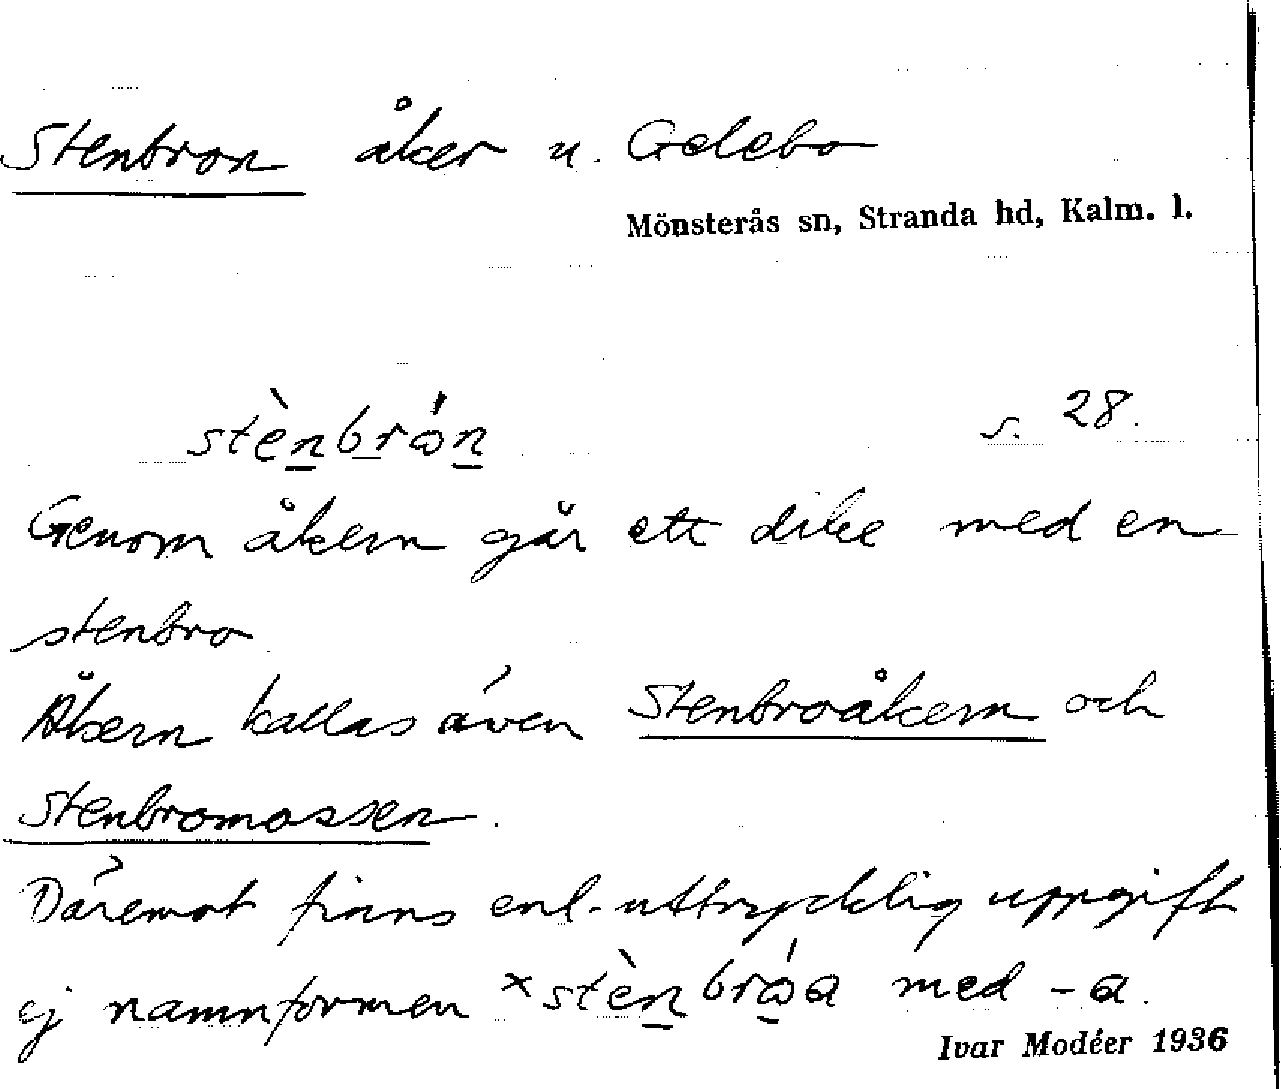 Stenbron åker u. Gelebo
Mönsterås sn, Stranda hd, Kalm. l.
stèn̲br̲ón̲ s. 28.
Genom åkern går ett dike med en
stenbro
Åkern kallas även Stenbroåkern och
Stenbromossen.
Däremot finns enl. uttrycklig uppgift
ej namnformen ×stèn̲bró̲a med -a.
Ivar Modéer 1936